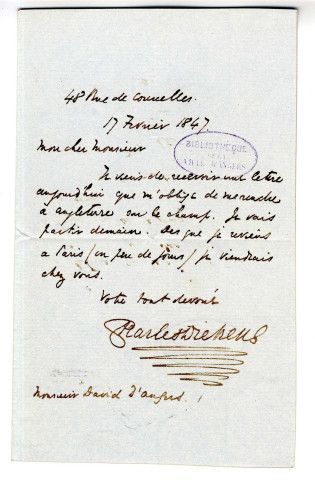 48 Rue de Courcelles.
17 Fevrier 1847.
BIBLIOTHÈQUE
DE LA
VILLE D'ANGERS
Mon cher Monsieur
Je viens de recevoir une lettre
aujourd'hui que m'oblige de me rendre
a Angleterre sur le champ. Je vais
partir demain. Des que je reviens
a Paris (en peu de jours) je viendrais
chez vous.
Votre tout devoué
Charles Dickens
Monsieur David D'Angers.